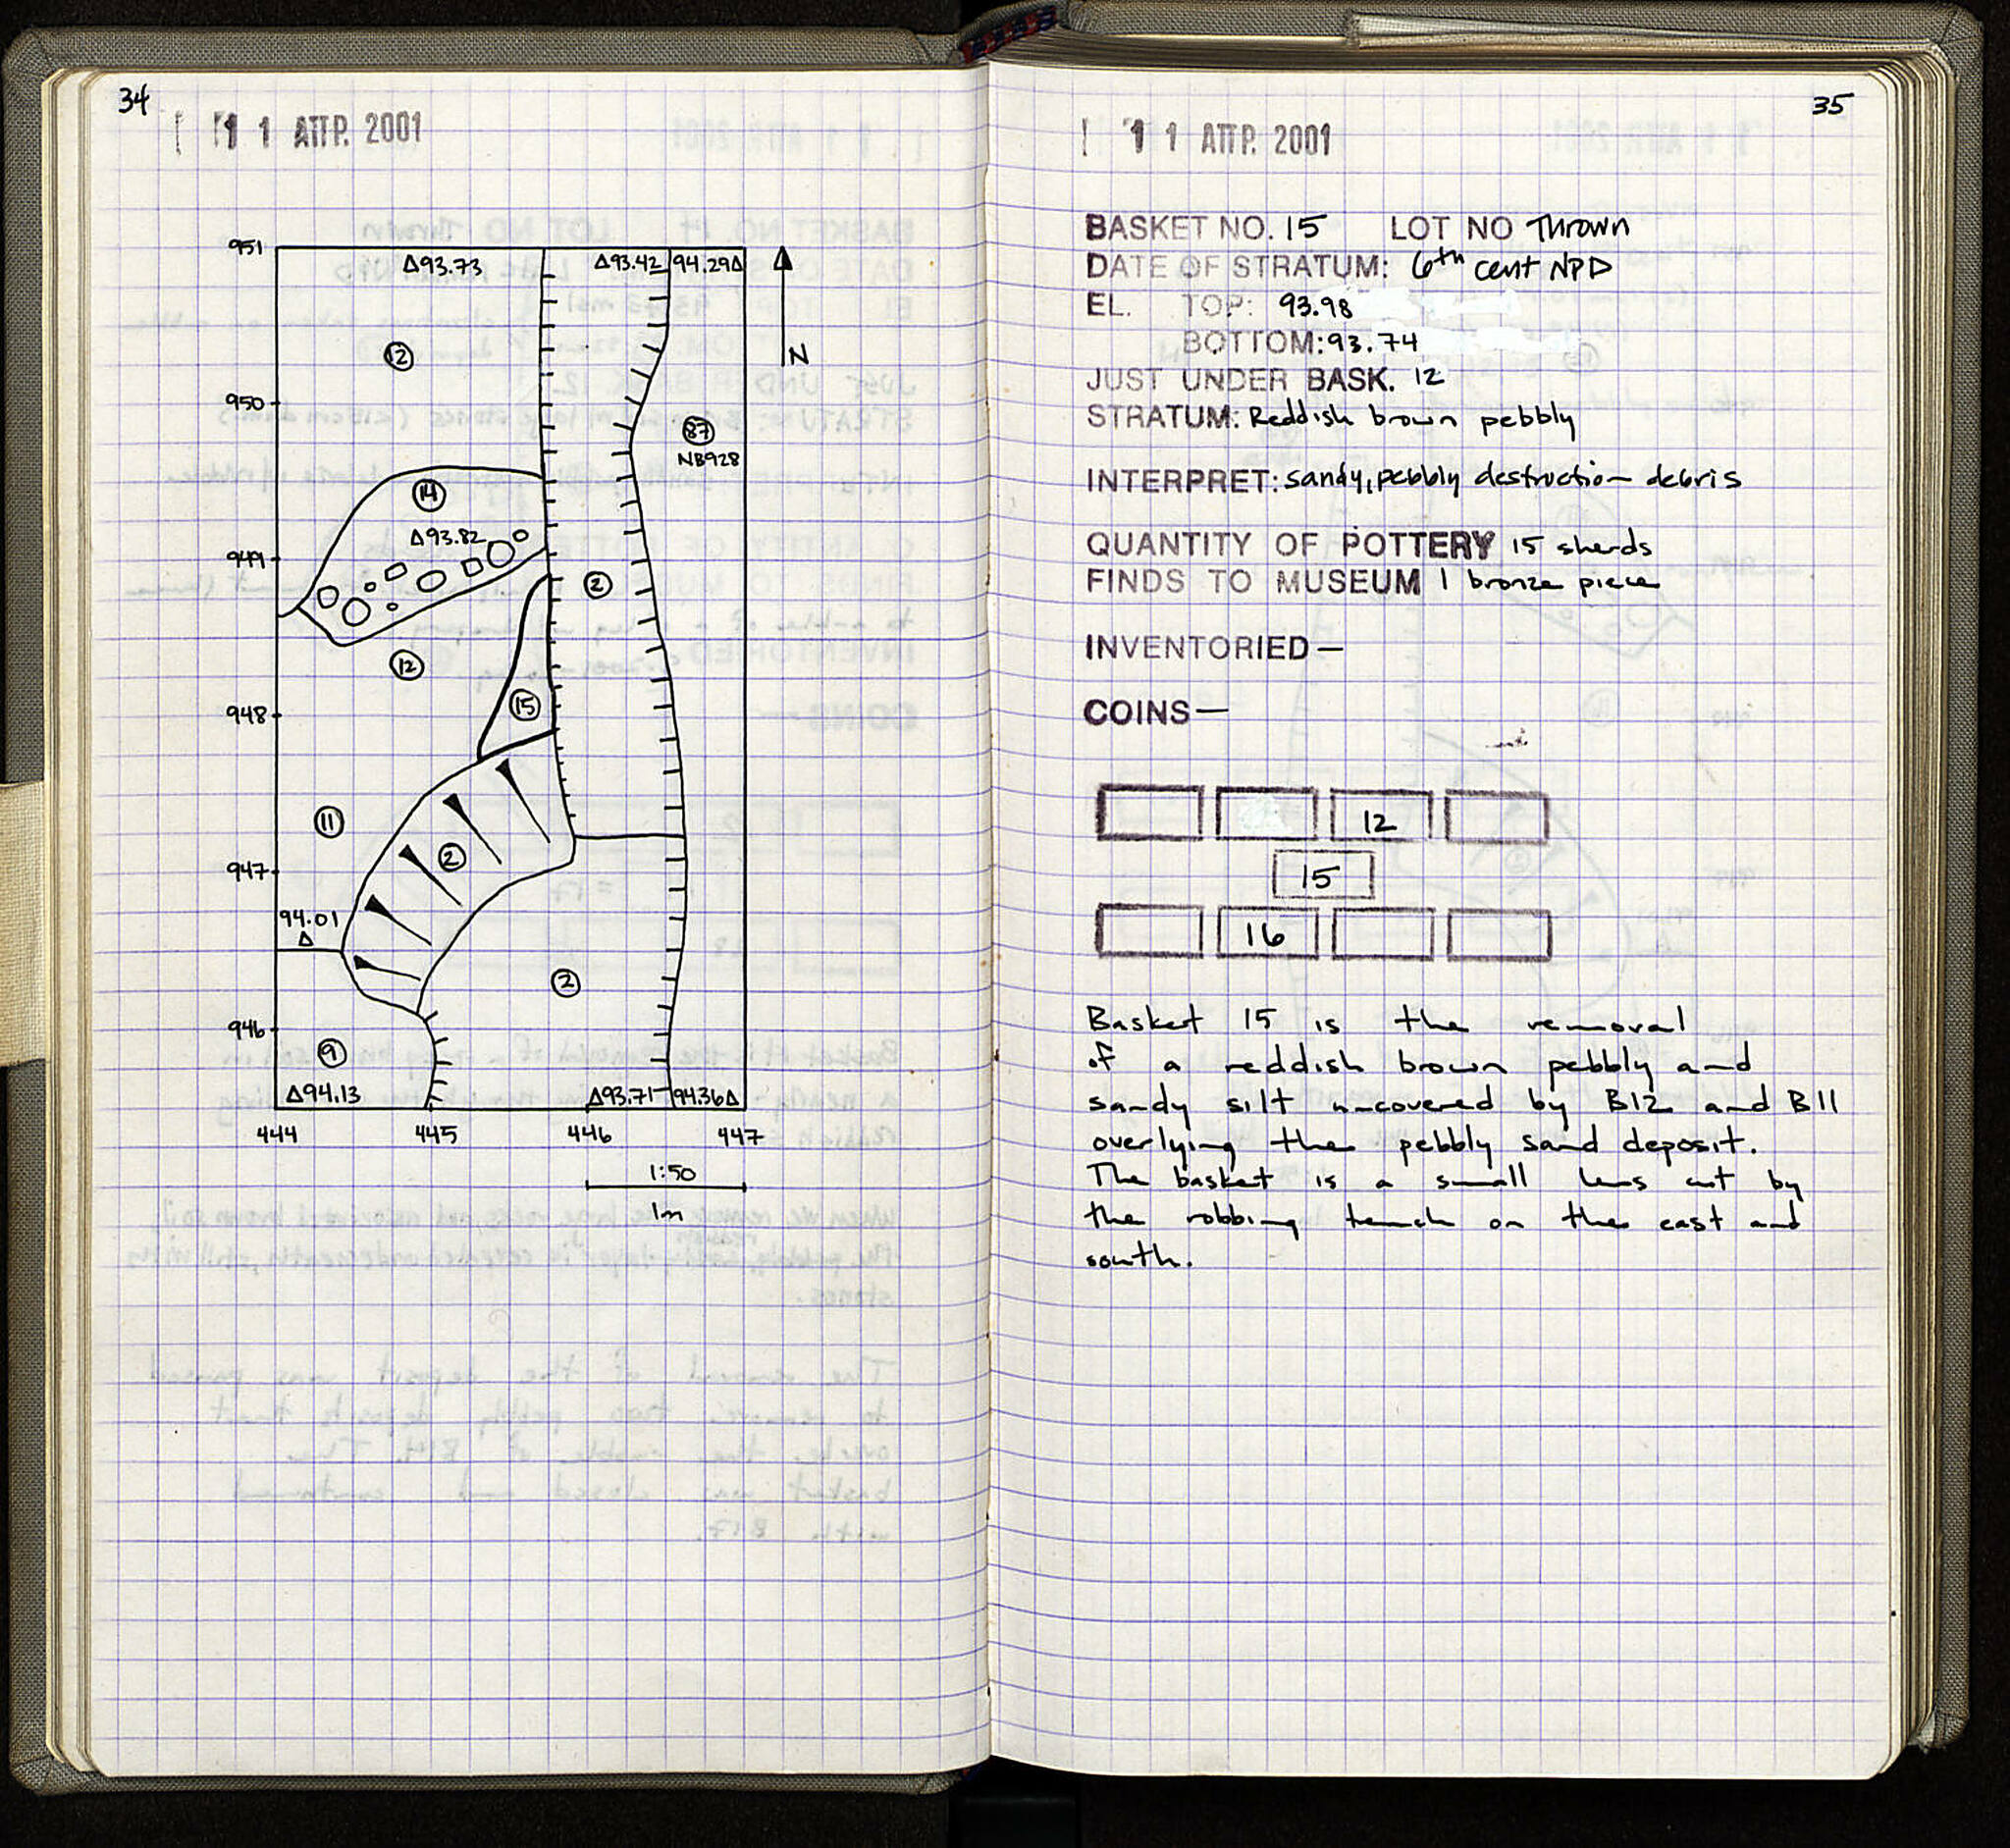 34
1 1 ΑΠΡ. 2001
951
Δ93.73
Δ93.42
94.29Δ
N
12
950
87
NB928
14
Δ93.82
949
2
12
15
948
11
2
947
94.01
Δ
2
946
9
Δ94.13
Δ93.71
94.36Δ
444 445 446 447
1:50
1m
35
1 1 ΑΠΡ. 2001
BASKET NO. 15 LOT NO Thrown
DATE OF STRATUM: 6th cent NPD
EL. TOP: 93.98
BOTTOM: 93.74
JUST UNDER BASK. 12
STRATUM: Reddish brown pebbly
INTERPRET: sandy, pebbly destruction debris
QUANTITY OF POTTERY 15 sherds
FINDS TO MUSEUM 1 bronze piece
INVENTORIED —
COINS —
12
15
16
Basket 15 is the removal
of a reddish brown pebbly and
sandy silt uncovered by B12 and B11
overlying the pebbly sand deposit.
The basket is a small lens cut by
the robbing trench on the east and
south.